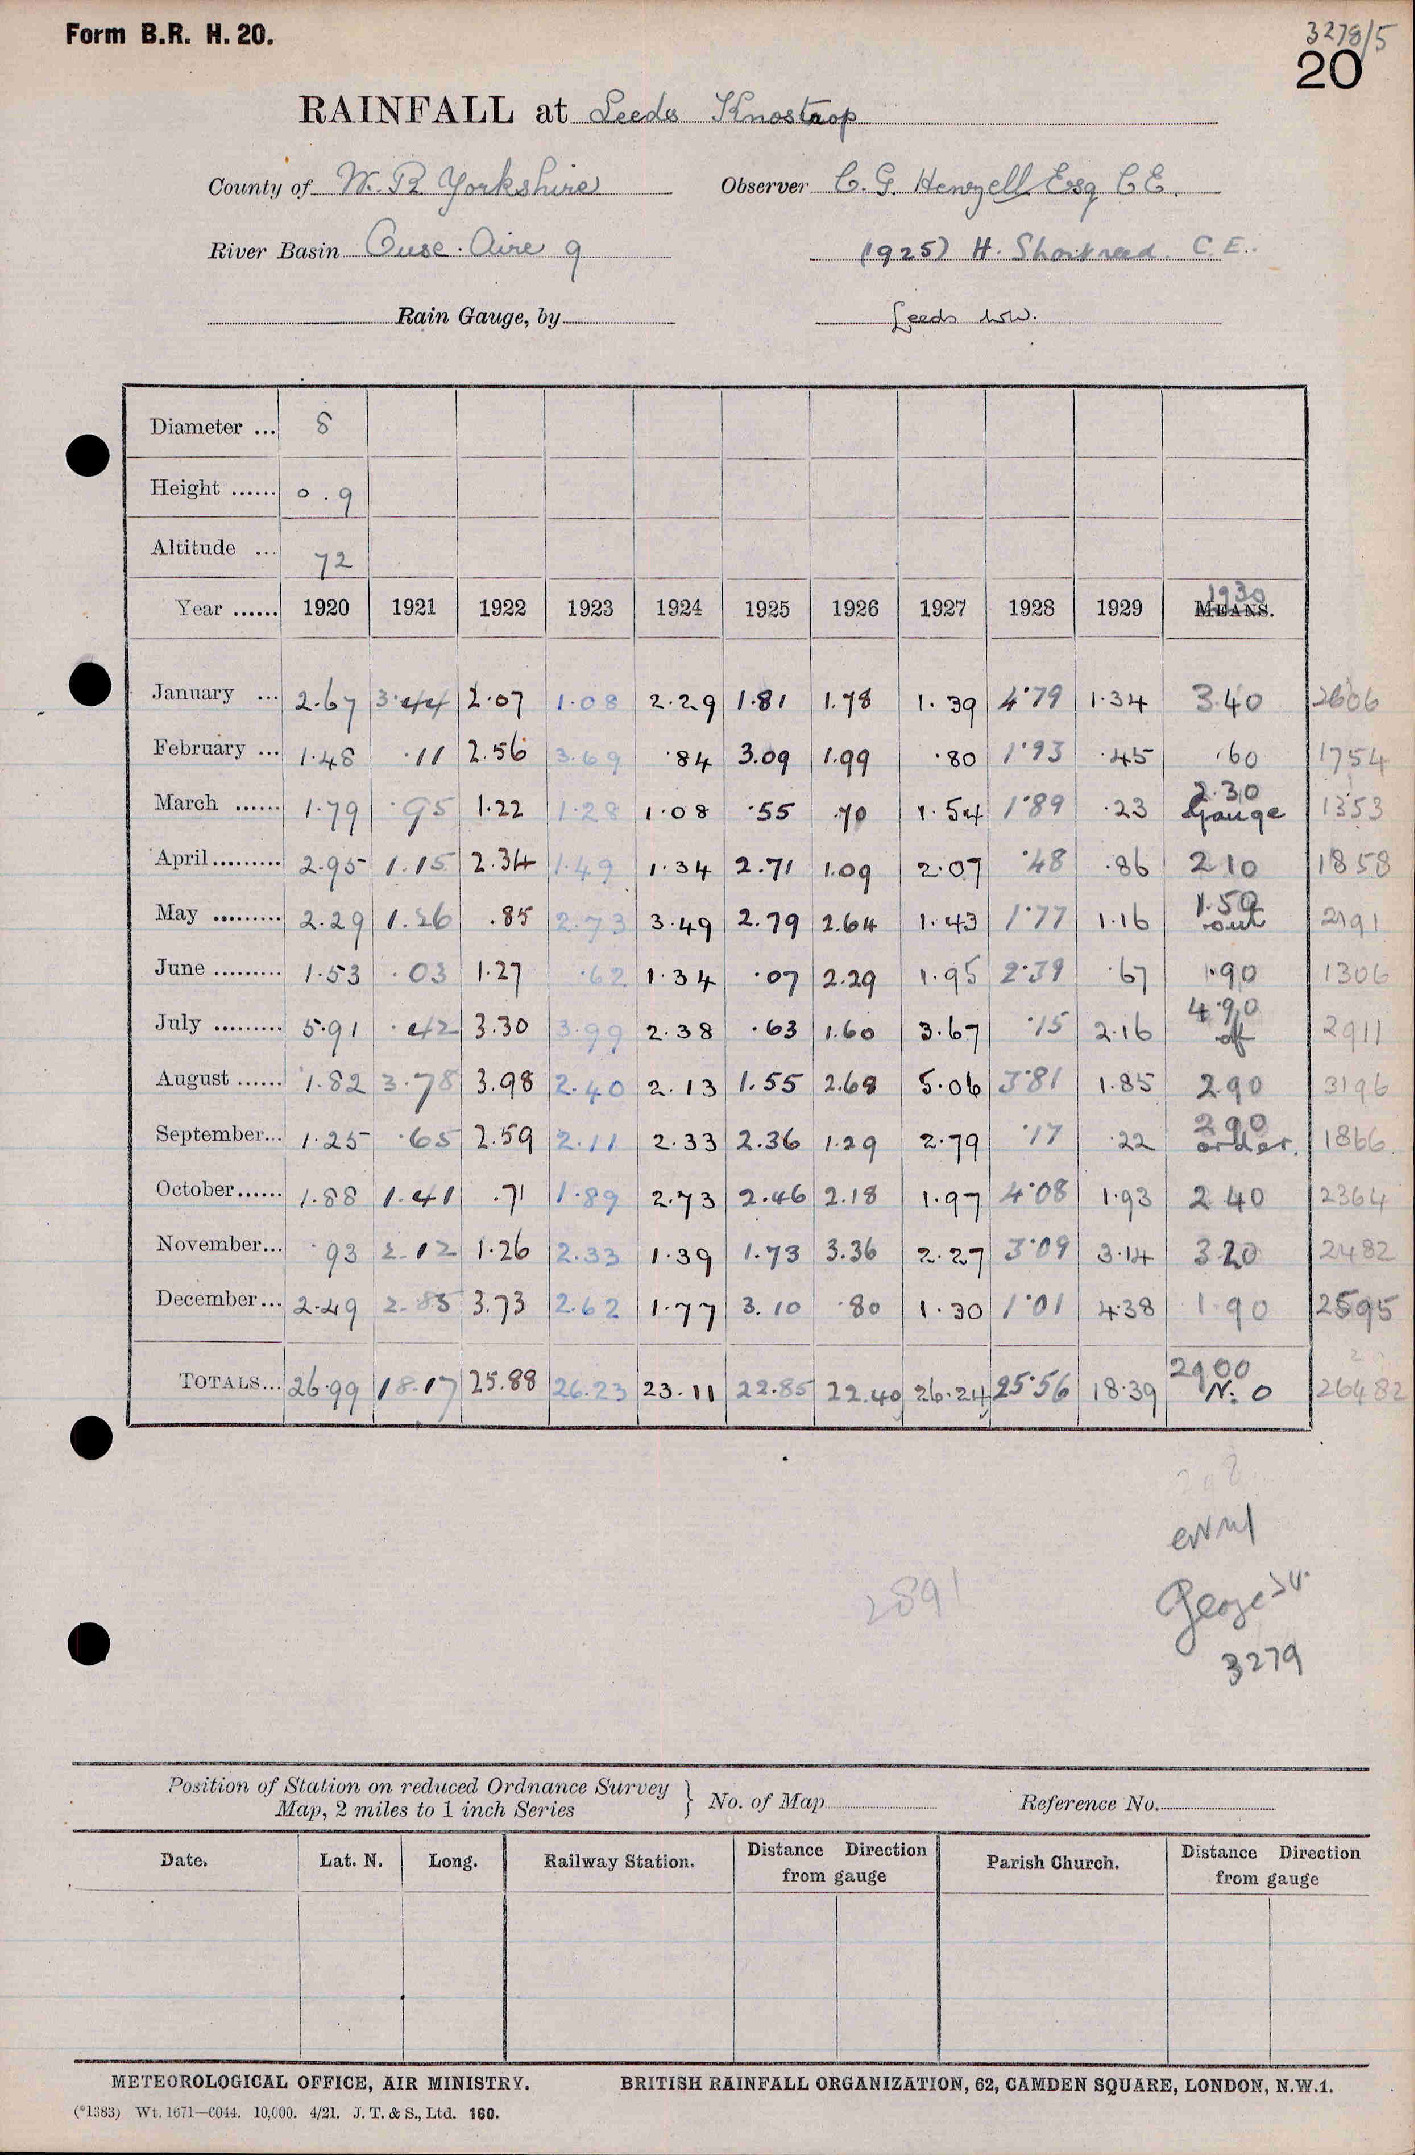 Form B.R. H. 20.
3278/5
20
RAINFALL at Leeds Knostrop
County of W. R Yorkshire Observer C. G. Henzell Esq C E.
River Basin Ouse. Aire 9 (1925) H. Shortread. C. E.
Rain Gauge, by Leeds WW.
Diameter ... 8
Height ...... 0.9
Altitude ... 72
Year ...... 1920 1921 1922 1923 1924 1925 1926 1927 1928 1929 MEANS. 1930
January ... 2.67 3.44 2.07 1.08 2.29 1.81 1.78 1.39 4.79 1.34 3.40 2606
February ... 1.48 .11 2.56 3.69 .84 3.09 1.99 .80 1.93 .45 .60 1754
March ...... 1.79 .95 1.22 1.28 1.08 .55 .70 1.54 1.89 .23 2.30 Gauge 1353
April ......... 2.95 1.15 2.34 1.49 1.34 2.71 1.09 2.07 .48 .86 2 10 1858
May ......... 2.29 1.26 .85 2.73 3.49 2.79 2.64 1.43 1.77 1.16 1.50 out 2191
June ......... 1.53 .03 1.27 .62 1.34 .07 2.29 1.95 2.39 .67 1.90 1306
July ......... 5.91 .42 3.30 3.99 2.38 .63 1.60 3.67 .15 2.16 4.90 of 2911
August ...... 1.82 3.78 3.98 2.40 2.13 1.55 2.68 5.06 3.81 1.85 2.90 3196
September... 1.25 .65 2.59 2.11 2.33 2.36 1.29 2.79 .17 .22 2.90 order. 1866
October...... 1.88 1.41 .71 1.89 2.73 2.46 2.18 1.97 4.08 1.93 2 40 2364
November... .93 2.12 1.26 2.33 1.39 1.73 3.36 2.27 3.09 3.14 3.20 2482
December... 2.49 2.85 3.73 2.62 1.77 3.10 .80 1.30 1.01 4.38 1.90 2595
TOTALS... 26.99 18.17 25.88 26.23 23.11 22.85 22.40 26.24 25.56 18.39 29.00 N: O 26482
2891
3279
Position of Station on reduced Ordnance Survey
Map, 2 miles to 1 inch Series } No. of Map Reference No.
Date. Lat. N. Long. Railway Station. Distance Direction from gauge Parish Church. Distance Direction from gauge
METEOROLOGICAL OFFICE, AIR MINISTRY. BRITISH RAINFALL ORGANIZATION, 62, CAMDEN SQUARE, LONDON, N.W.1.
(*1383) Wt. 1671—6044. 10,000. 4/21. J. T. & S., Ltd. 160.